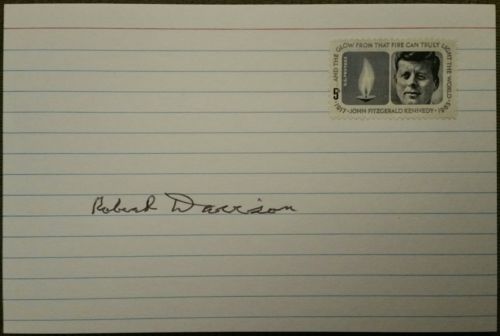 AND THE GLOW FROM THAT FIRE CAN TRULY LIGHT THE WORLD
U.S. POSTAGE
5¢
1917-JOHN FITZGERALD KENNEDY-1963
Robert